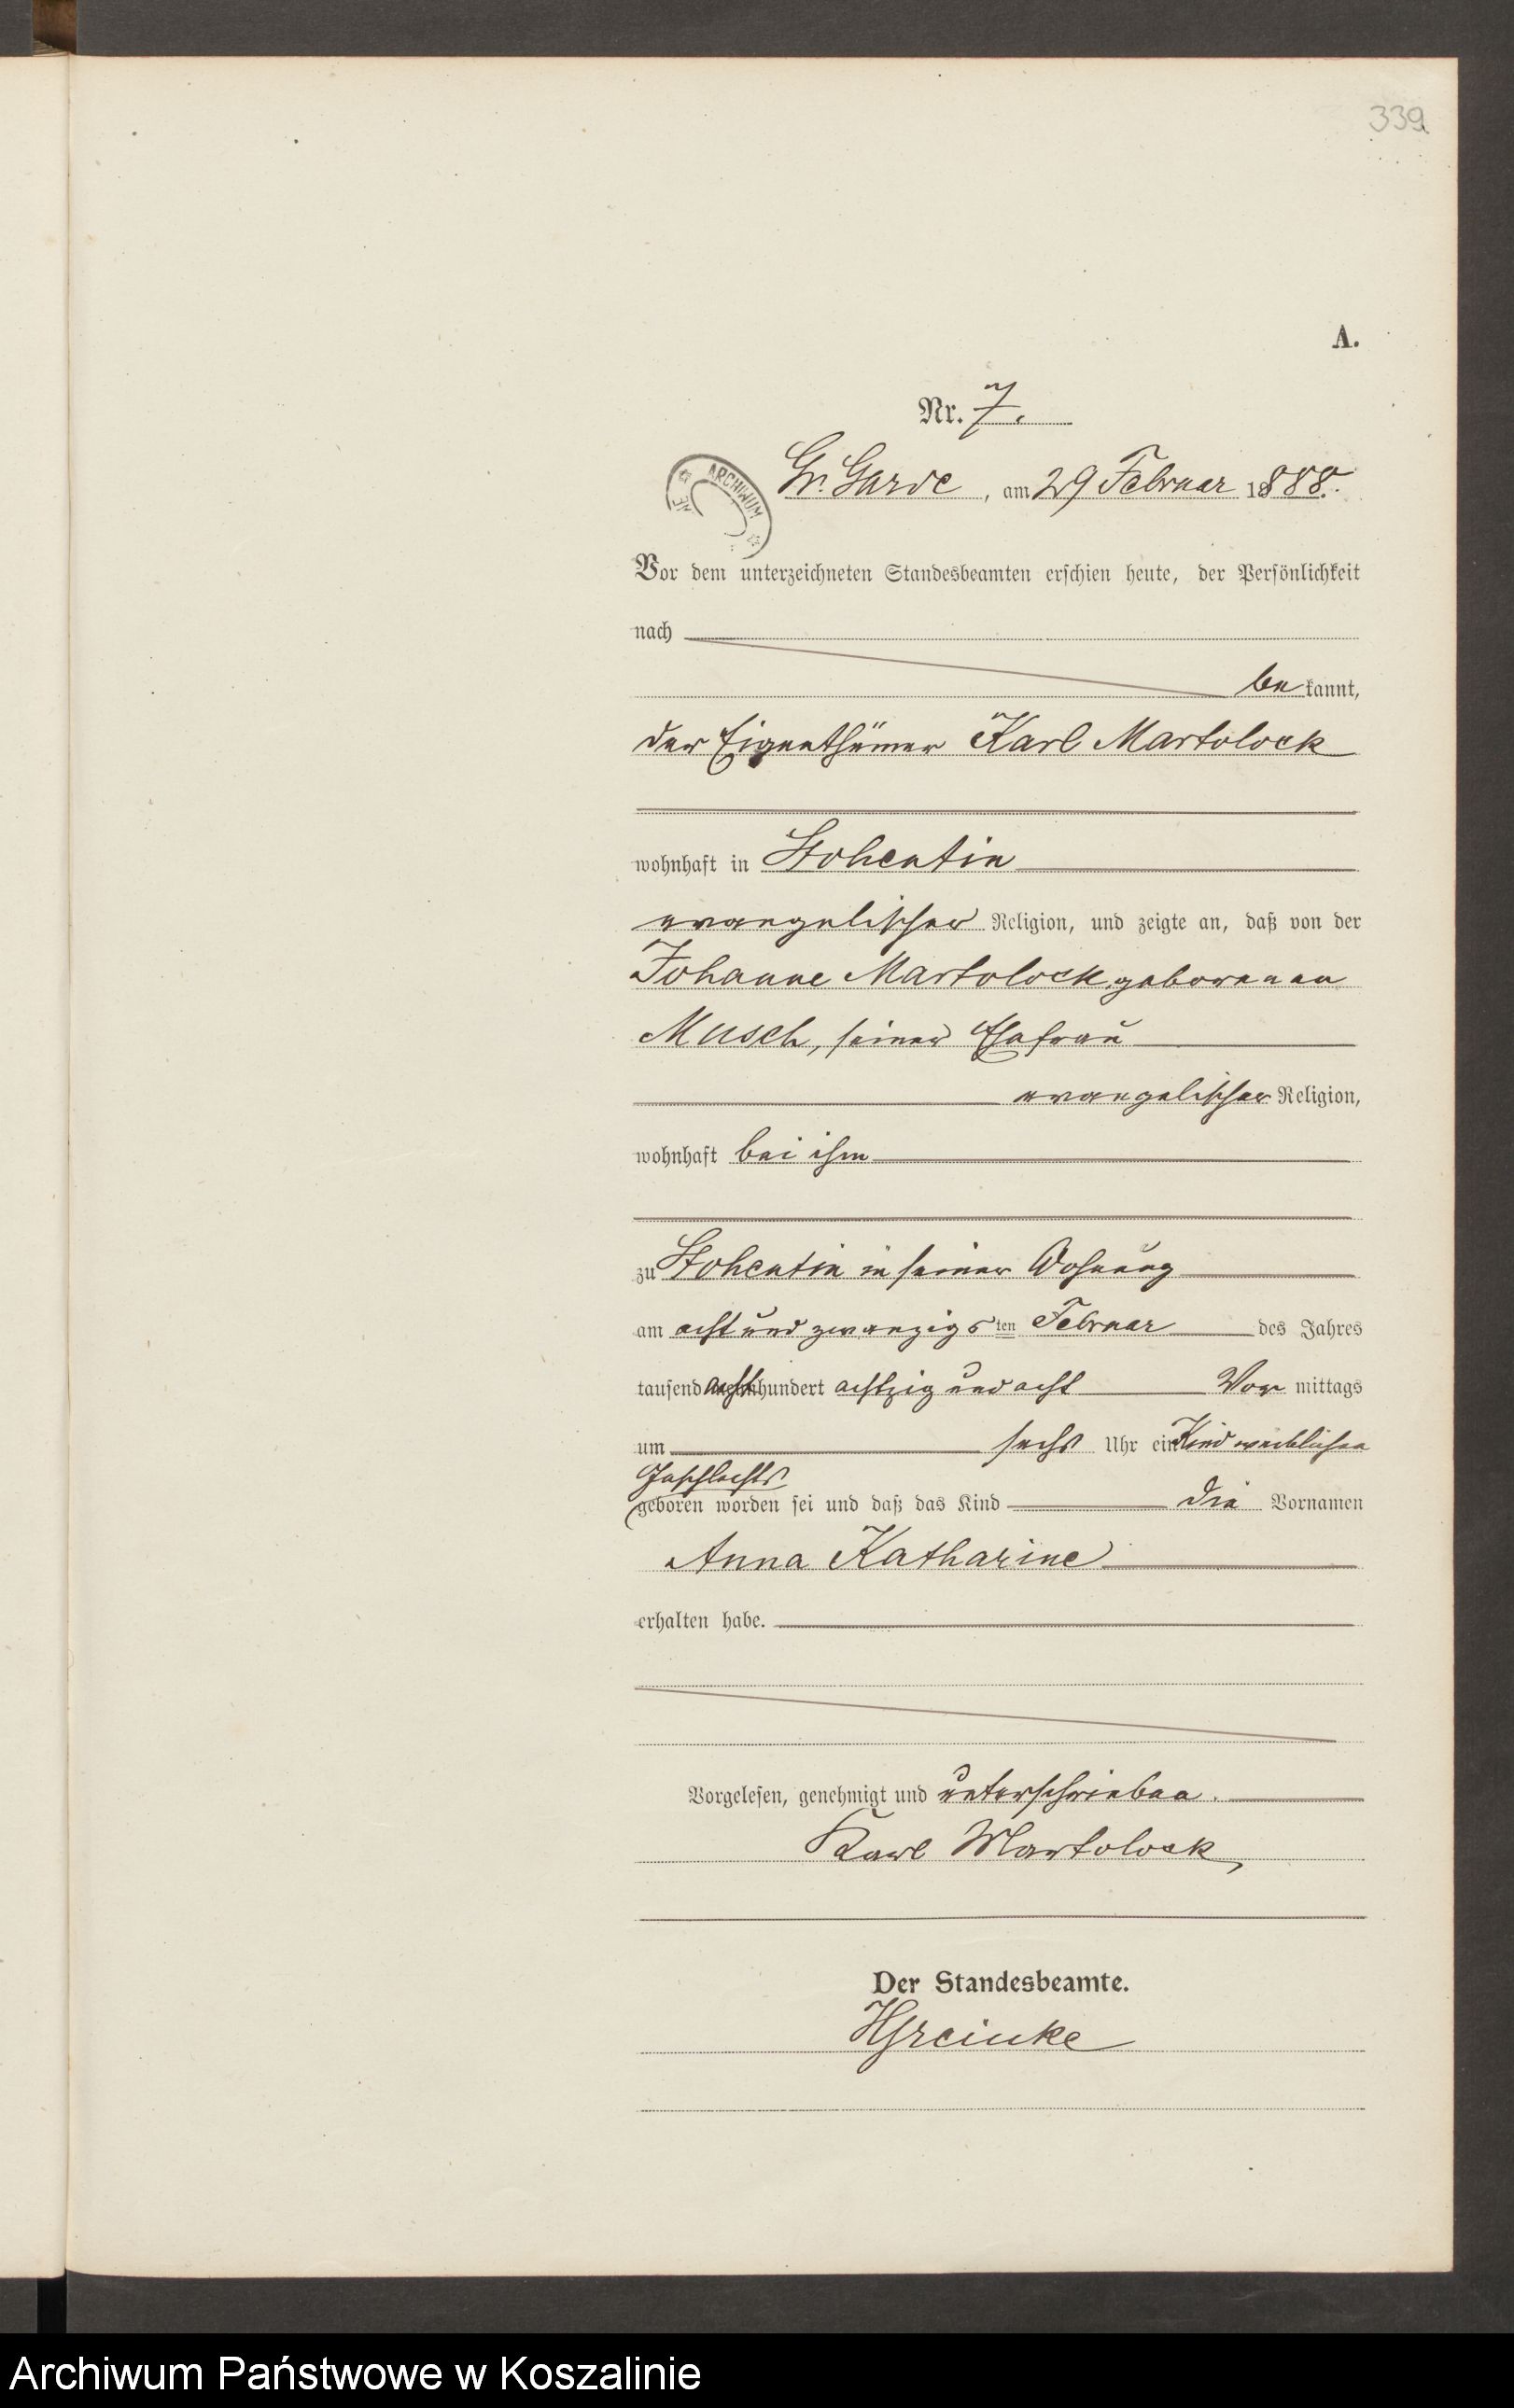 339.
A.
Nr. 7.
ARCHIWUM
Gr. Garde, am 29 Februar 1888.
Vor dem unterzeichneten Standesbeamten erschien heute, der Persönlichkeit
nach
be kannt,
der Eigenthümer Karl Martolock
wohnhaft in Stohentin
evangelischer Religion, und zeigte an, daß von der
Johanne Martolock geborenen
Musch, seiner Ehefrau
evangelischer Religion,
wohnhaft bei ihm
zu Stohentin in seiner Wohnung
am acht und zwanzigsten Februar des Jahres
tausend acht hundert achtzig und acht Vor mittags
um sechs Uhr ein Kind weiblichen
Geschlechts
geboren worden sei und daß das Kind die Vornamen
Anna Katharine
erhalten habe.
Vorgelesen, genehmigt und unterschrieben.
Karl Martolock
Der Standesbeamte.
Archiwum Państwowe w Koszalinie